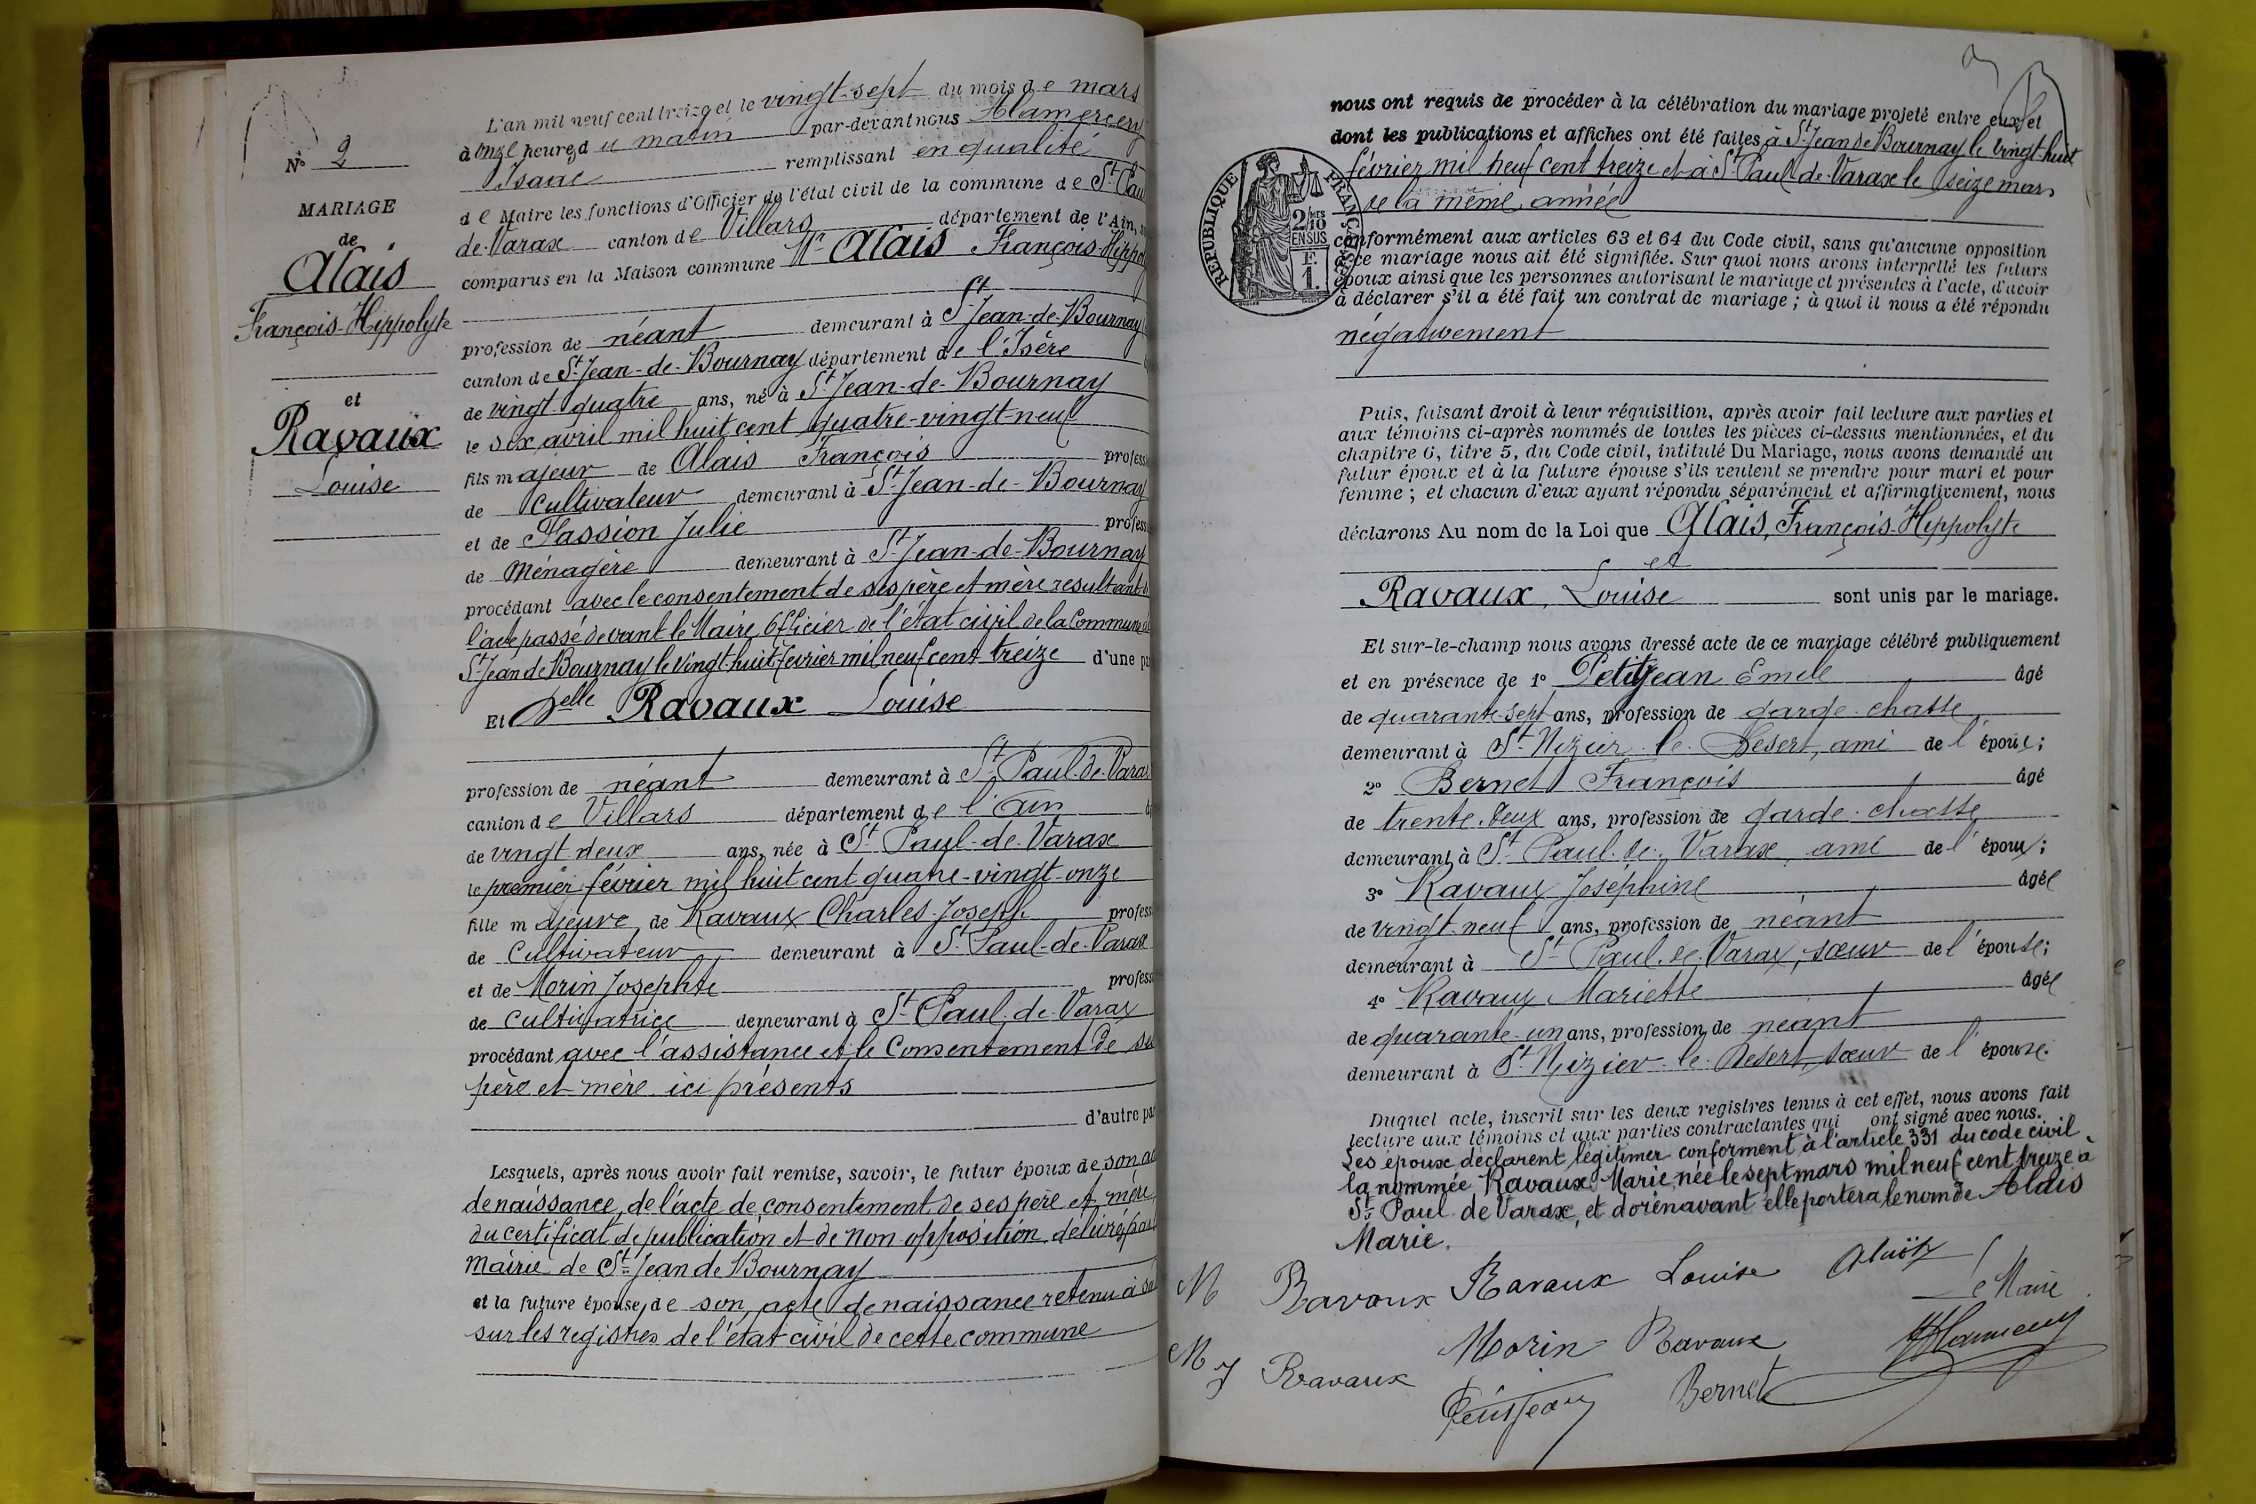 N° 2
MARIAGE
de
Alais
François-Hippolyte
et
Ravaux
Louise
L'an mil neuf cent treize et le vingt-sept du mois de mars
à onze heures du matin par-devant nous Alamercery
Isaac remplissant en qualité
de Maire les fonctions d'Officier de l'état civil de la commune de St Paul
de-Varax canton de Villars département de l'Ain,
comparus en la Maison commune Mr Alais François-Hippol
profession de néant demeurant à St Jean-de-Bournay
canton de St Jean-de-Bournay département de l'Isère
de vingt-quatre ans, né à St Jean-de-Bournay
le six avril mil huit cent quatre-vingt-neuf
fils majeur de Alais François profess
de cultivateur demeurant à St Jean-de-Bournay
et de Passion Julie profess
de Ménagère demeurant à St Jean-de-Bournay
procédant avec le consentement de ses père et mère resultant
l'acte passé devant le Maire, Officier de l'état civil de la Commune
St Jean de Bournay le vingt-huit février mil neuf cent treize d'une pa
Et Delle Ravaux Louise
profession de néant demeurant à St Paul-de-Varax
canton de Villars département de l'Ain
de vingt deux ans, née à St Paul-de-Varax
le premier février mil huit cent quatre-vingt-onze
fille majeure de Ravaux Charles-Joseph profess
de Cultivateur demeurant à St Paul-de-Varax
et de Morin Josephte profess
de cultivatrice demeurant à St Paul-de-Varax
procédant avec l'assistance et le consentement de ses
père et mère ici présents
d'autre par
Lesquels, après nous avoir fait remise, savoir, le futur époux de son ac
de naissance, de l'acte de consentement de ses père et mère,
du certificat de publication et de non opposition délivré par
mairie de St Jean de Bournay
et la future épouse, de son acte de naissance retenu à sa
sur les registres de l'état civil de cette commune
nous ont requis de procéder à la célébration du mariage projeté entre eux et
dont les publications et affiches ont été faites à St Jean de Bournay le vingt-huit
février mil neuf cent treize et à St Paul-de-Varax le seize mars
de la même année
RÉPUBLIQUE FRANÇAISE
2/10
EN SUS
F.
1
conformément aux articles 63 et 64 du Code civil, sans qu'aucune opposition
à ce mariage nous ait été signifiée. Sur quoi nous avons interpellé les futurs
époux ainsi que les personnes autorisant le mariage et présentes à l'acte, d'avoir
à déclarer s'il a été fait un contrat de mariage ; à quoi il nous a été répondu
négativement
Puis, faisant droit à leur réquisition, après avoir fait lecture aux parties et
aux témoins ci-après nommés de toutes les pièces ci-dessus mentionnées, et du
chapitre 6, titre 5, du Code civil, intitulé Du Mariage, nous avons demandé au
futur époux et à la future épouse s'ils veulent se prendre pour mari et pour
femme ; et chacun d'eux ayant répondu séparément et affirmativement, nous
déclarons Au nom de la Loi que Alais, François-Hippolyte
et
Ravaux, Louise sont unis par le mariage.
Et sur-le-champ nous avons dressé acte de ce mariage célébré publiquement
et en présence de 1° Petitjean Emile âgé
de quarante-sept ans, profession de garde-chasse
demeurant à St Nizier-le-Désert, ami de l'époux;
2° Bernet François âgé
de trente-deux ans, profession de garde-chasse
demeurant à St Paul-de-Varax, ami de l'époux;
3° Ravaux Joséphine âgée
de vingt-neuf ans, profession de néant
demeurant à St Paul-de-Varax, sœur de l'épouse;
4° Ravaux Mariette âgée
de quarante-un ans, profession de néant
demeurant à St Nizier-le-Désert, sœur de l'épouse.
Duquel acte, inscrit sur les deux registres tenus à cet effet, nous avons fait
lecture aux témoins et aux parties contractantes qui ont signé avec nous.
Les époux déclarent légitimer conforment à l'article 331 du code civil
la nommée Ravaux Marie née le sept mars mil neuf cent treize à
St Paul de Varax, et dorénavant elle portera le nom de Alais
Marie.
M Ravaux Ravaux Louise
Le Maire
Morin Ravaux
M J Ravaux
Petitjean Bernet